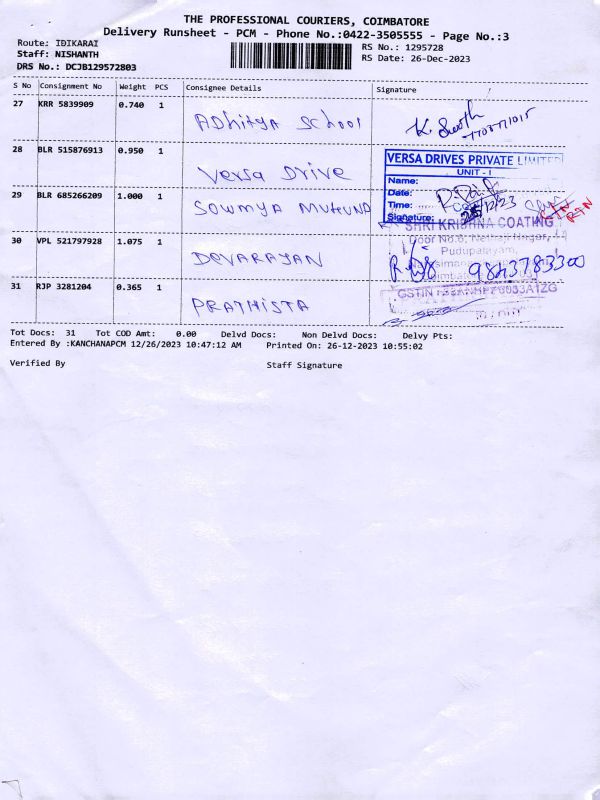 THE PROFESSIONAL COURIERS, COIMBATORE
Delivery Runsheet - PCM - Phone No.:0422-3505555 - Page No.:3
Route: IDIKARAI
Staff: NISHANTH
DRS No.: DCJB129572803
RS No.: 1295728
RS Date: 26-Dec-2023
S No Consignment No Weight PCS Consignee Details Signature
27 KRR 5839909 0.740 1 Adhitya School
28 BLR 515876913 0.950 1 Versa Drive
VERSA DRIVES PRIVATE LIMITED
UNIT - I
Name:
Date:
Time:
Signature:
29 BLR 685266209 1.000 1 Sowmya
RTN
SHRI KRISHNA COATING
Door No.6,
Pudupalayam,
30 VPL 521797928 1.075 1 DEVARAYAN
9843783300
31 RJP 3281204 0.365 1 PRATHISTA
GSTIN
Tot Docs: 31 Tot COD Amt: 0.00 Delvd Docs: Non Delvd Docs: Delvy Pts:
Entered By :KANCHANAPCM 12/26/2023 10:47:12 AM Printed On: 26-12-2023 10:55:02
Verified By Staff Signature